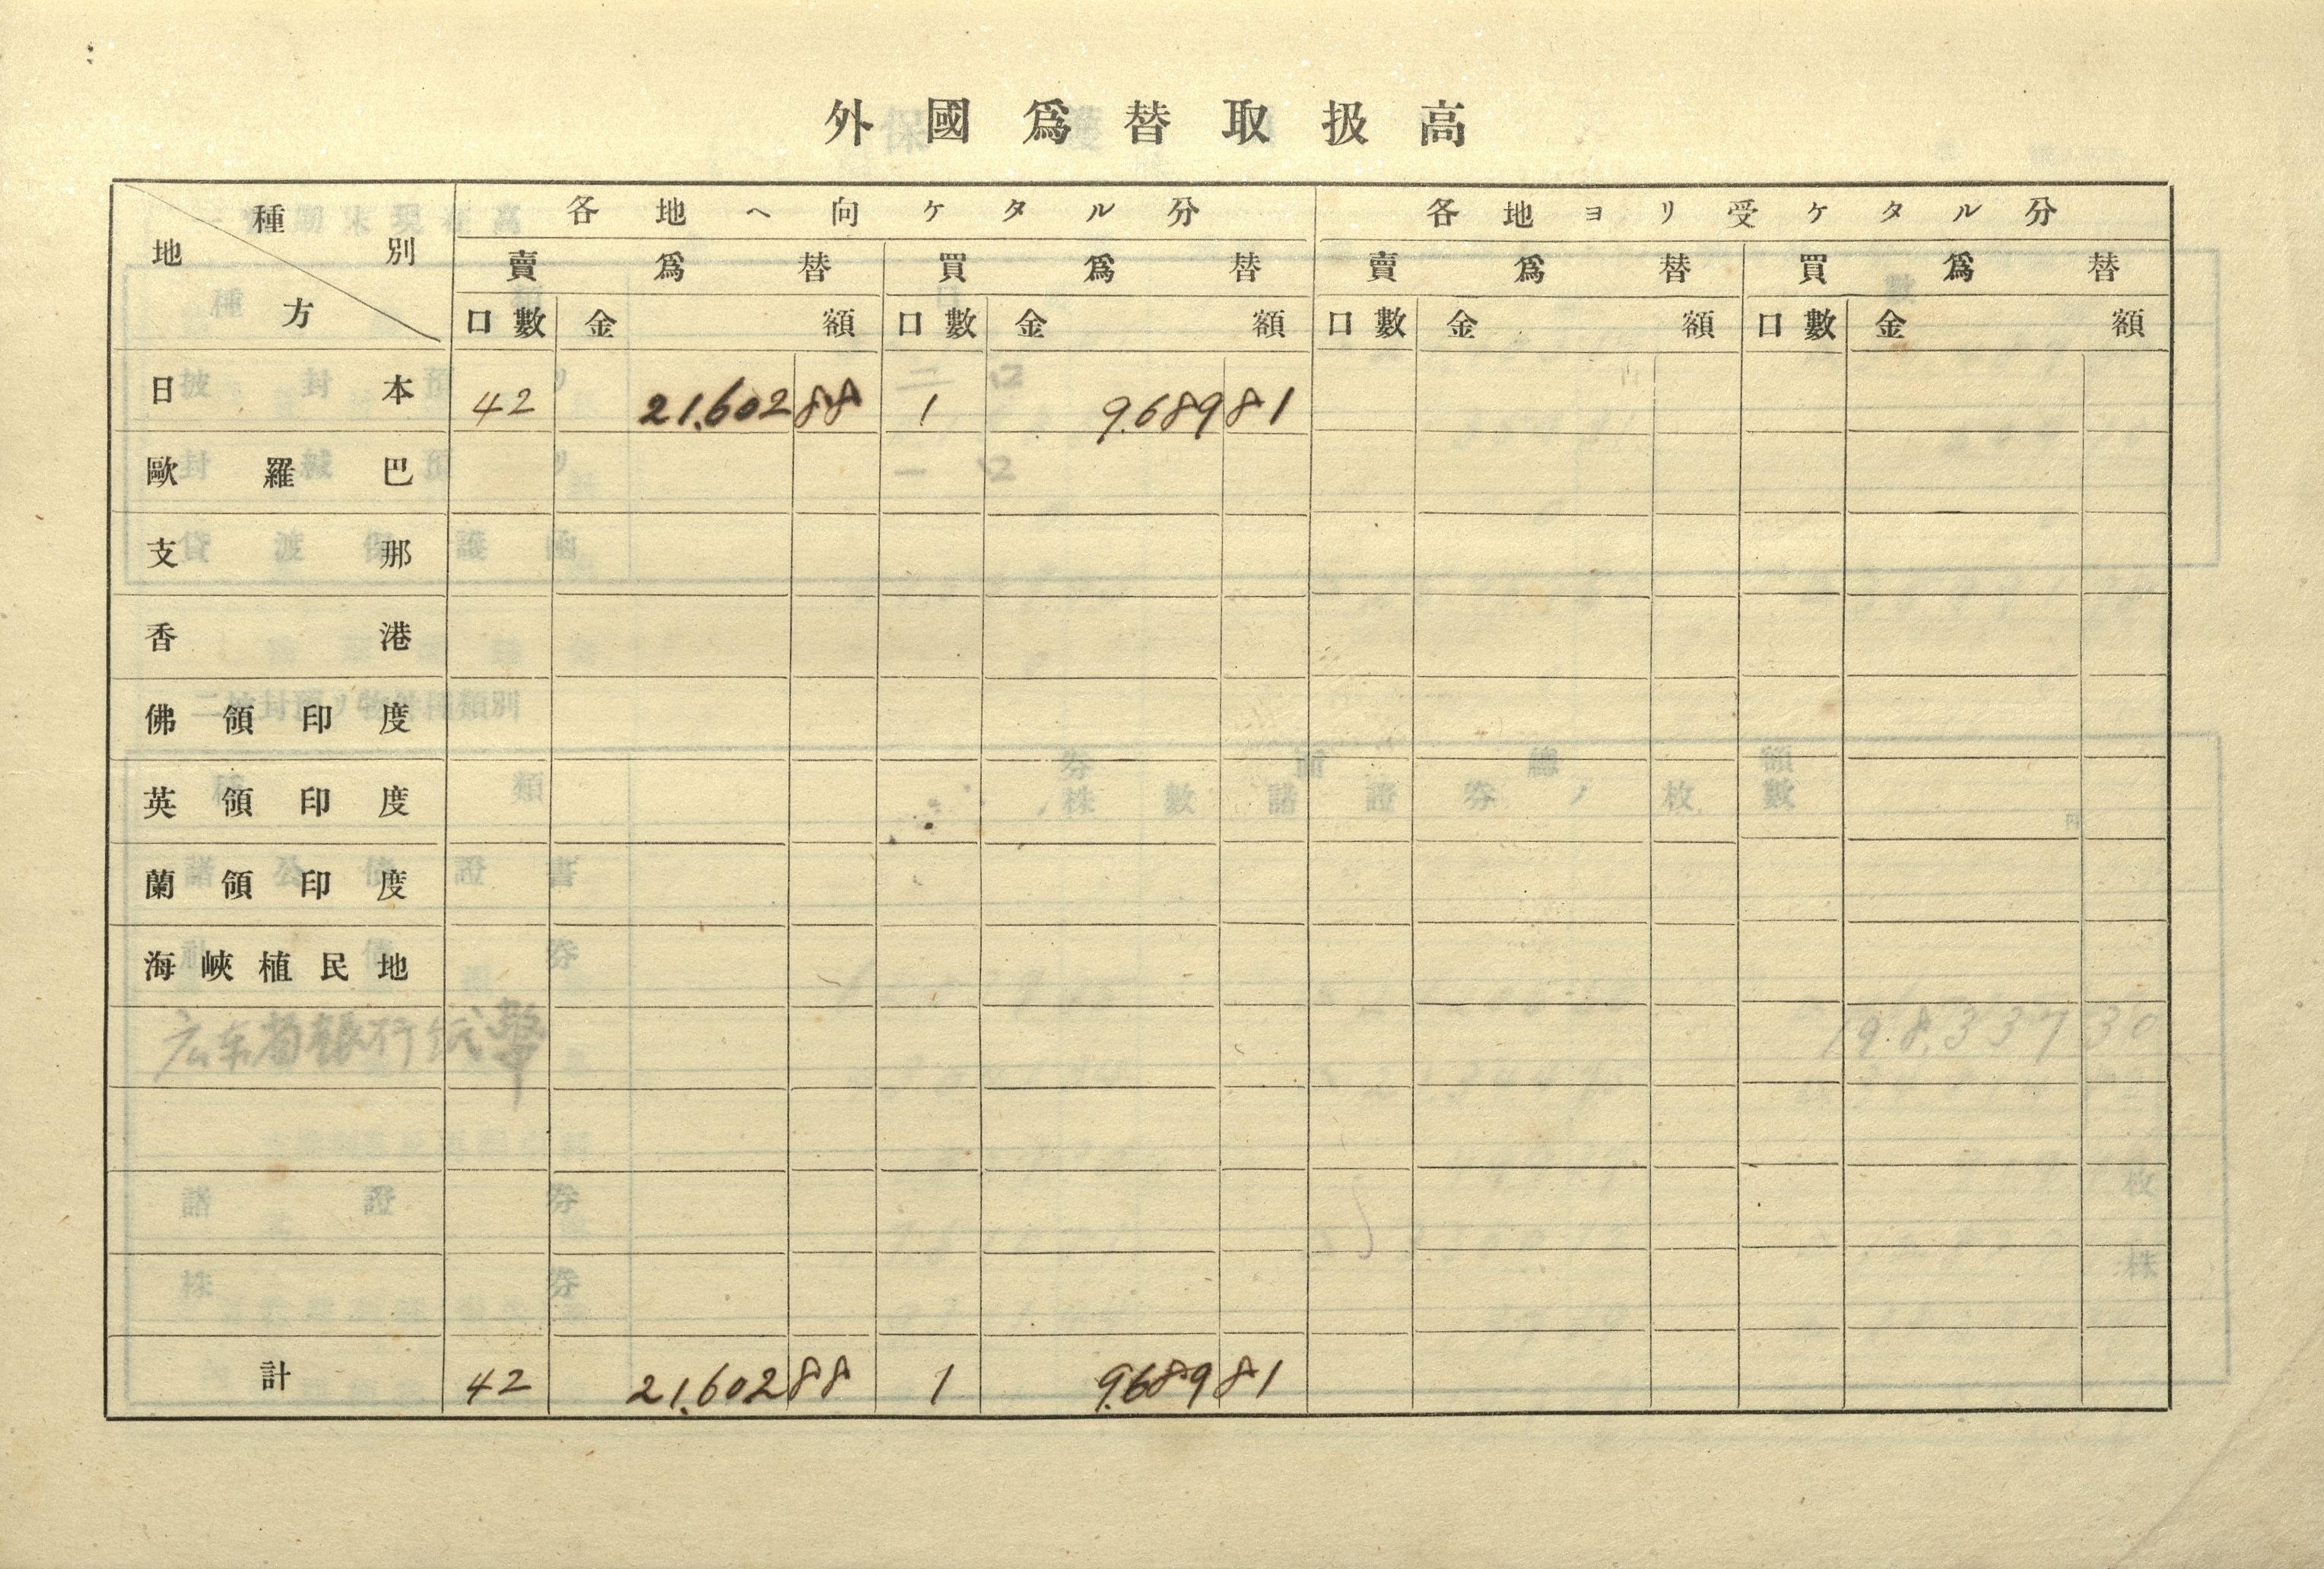 外國爲替取扱高
種別
地方
各地ヘ向ケタル分 各地ヨリ受ケタル分
賣爲替 買爲替 賣爲替 買爲替
口數 金額 口數 金額 口數 金額 口數 金額
日本 42 21,602 88 1 9,689 81
歐羅巴
支那
香港
佛領印度
英領印度
蘭領印度
海峽植民地
広东省銀行 198,337 30
計 42 21,602 88 1 9,689 81